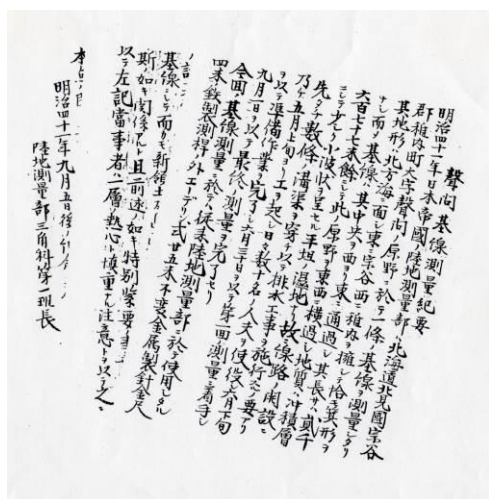 聲問基線測量紀要
明治四十一年日本帝國陸地測量部ハ北海道北見國宗谷
郡稚内町大字聲問ノ原野ニ於テ一條ノ基線ヲ測量シタリ
其地形ハ北方海ニ面シ東ニ宗谷西ニ稚内ヲ擁シテ恰モ箕形ヲ
而テ基線ハ其中央ヲ西ヨリ東ニ通過シ其長サハ貳千
六百七十七米餘ニシテ此ノ原野ヲ東西ニ横過シ地質ハ沖積層
ニシテ少シク小波状ヲ呈セル平坦ノ濕地ナリ故ニ線路ノ開設ニ
先タチ數條ノ溝渠ヲ穿チ以テ排水工事ヲ施行スルヲ要シタリ
乃チ五月上旬ヨリ工ヲ起シ日々數十名ノ人夫ヲ使役シ六月下旬
ヲ以テ準備作業ヲ完了シ六月三日ヲ以テ第一回測量ニ着手シ
九月一日ヲ以テ最終ノ測量ヲ完了セリ
全國ノ基線測量ニ於テハ従来陸地測量部ニ於テ使用シタル
四米鉄製測桿ノ外エーデリン式廿五米不変金属製針金尺
基線ニシテ而カモ新領土
斯ノ如キ関係アルト且ツ前述ノ如キ特別緊要ノ事
以テ左記當事者ハ一層ノ熱心ト慎重ノ注意トヲ以テ之
明治四十一年九月五日
陸地測量部三角科第一班長